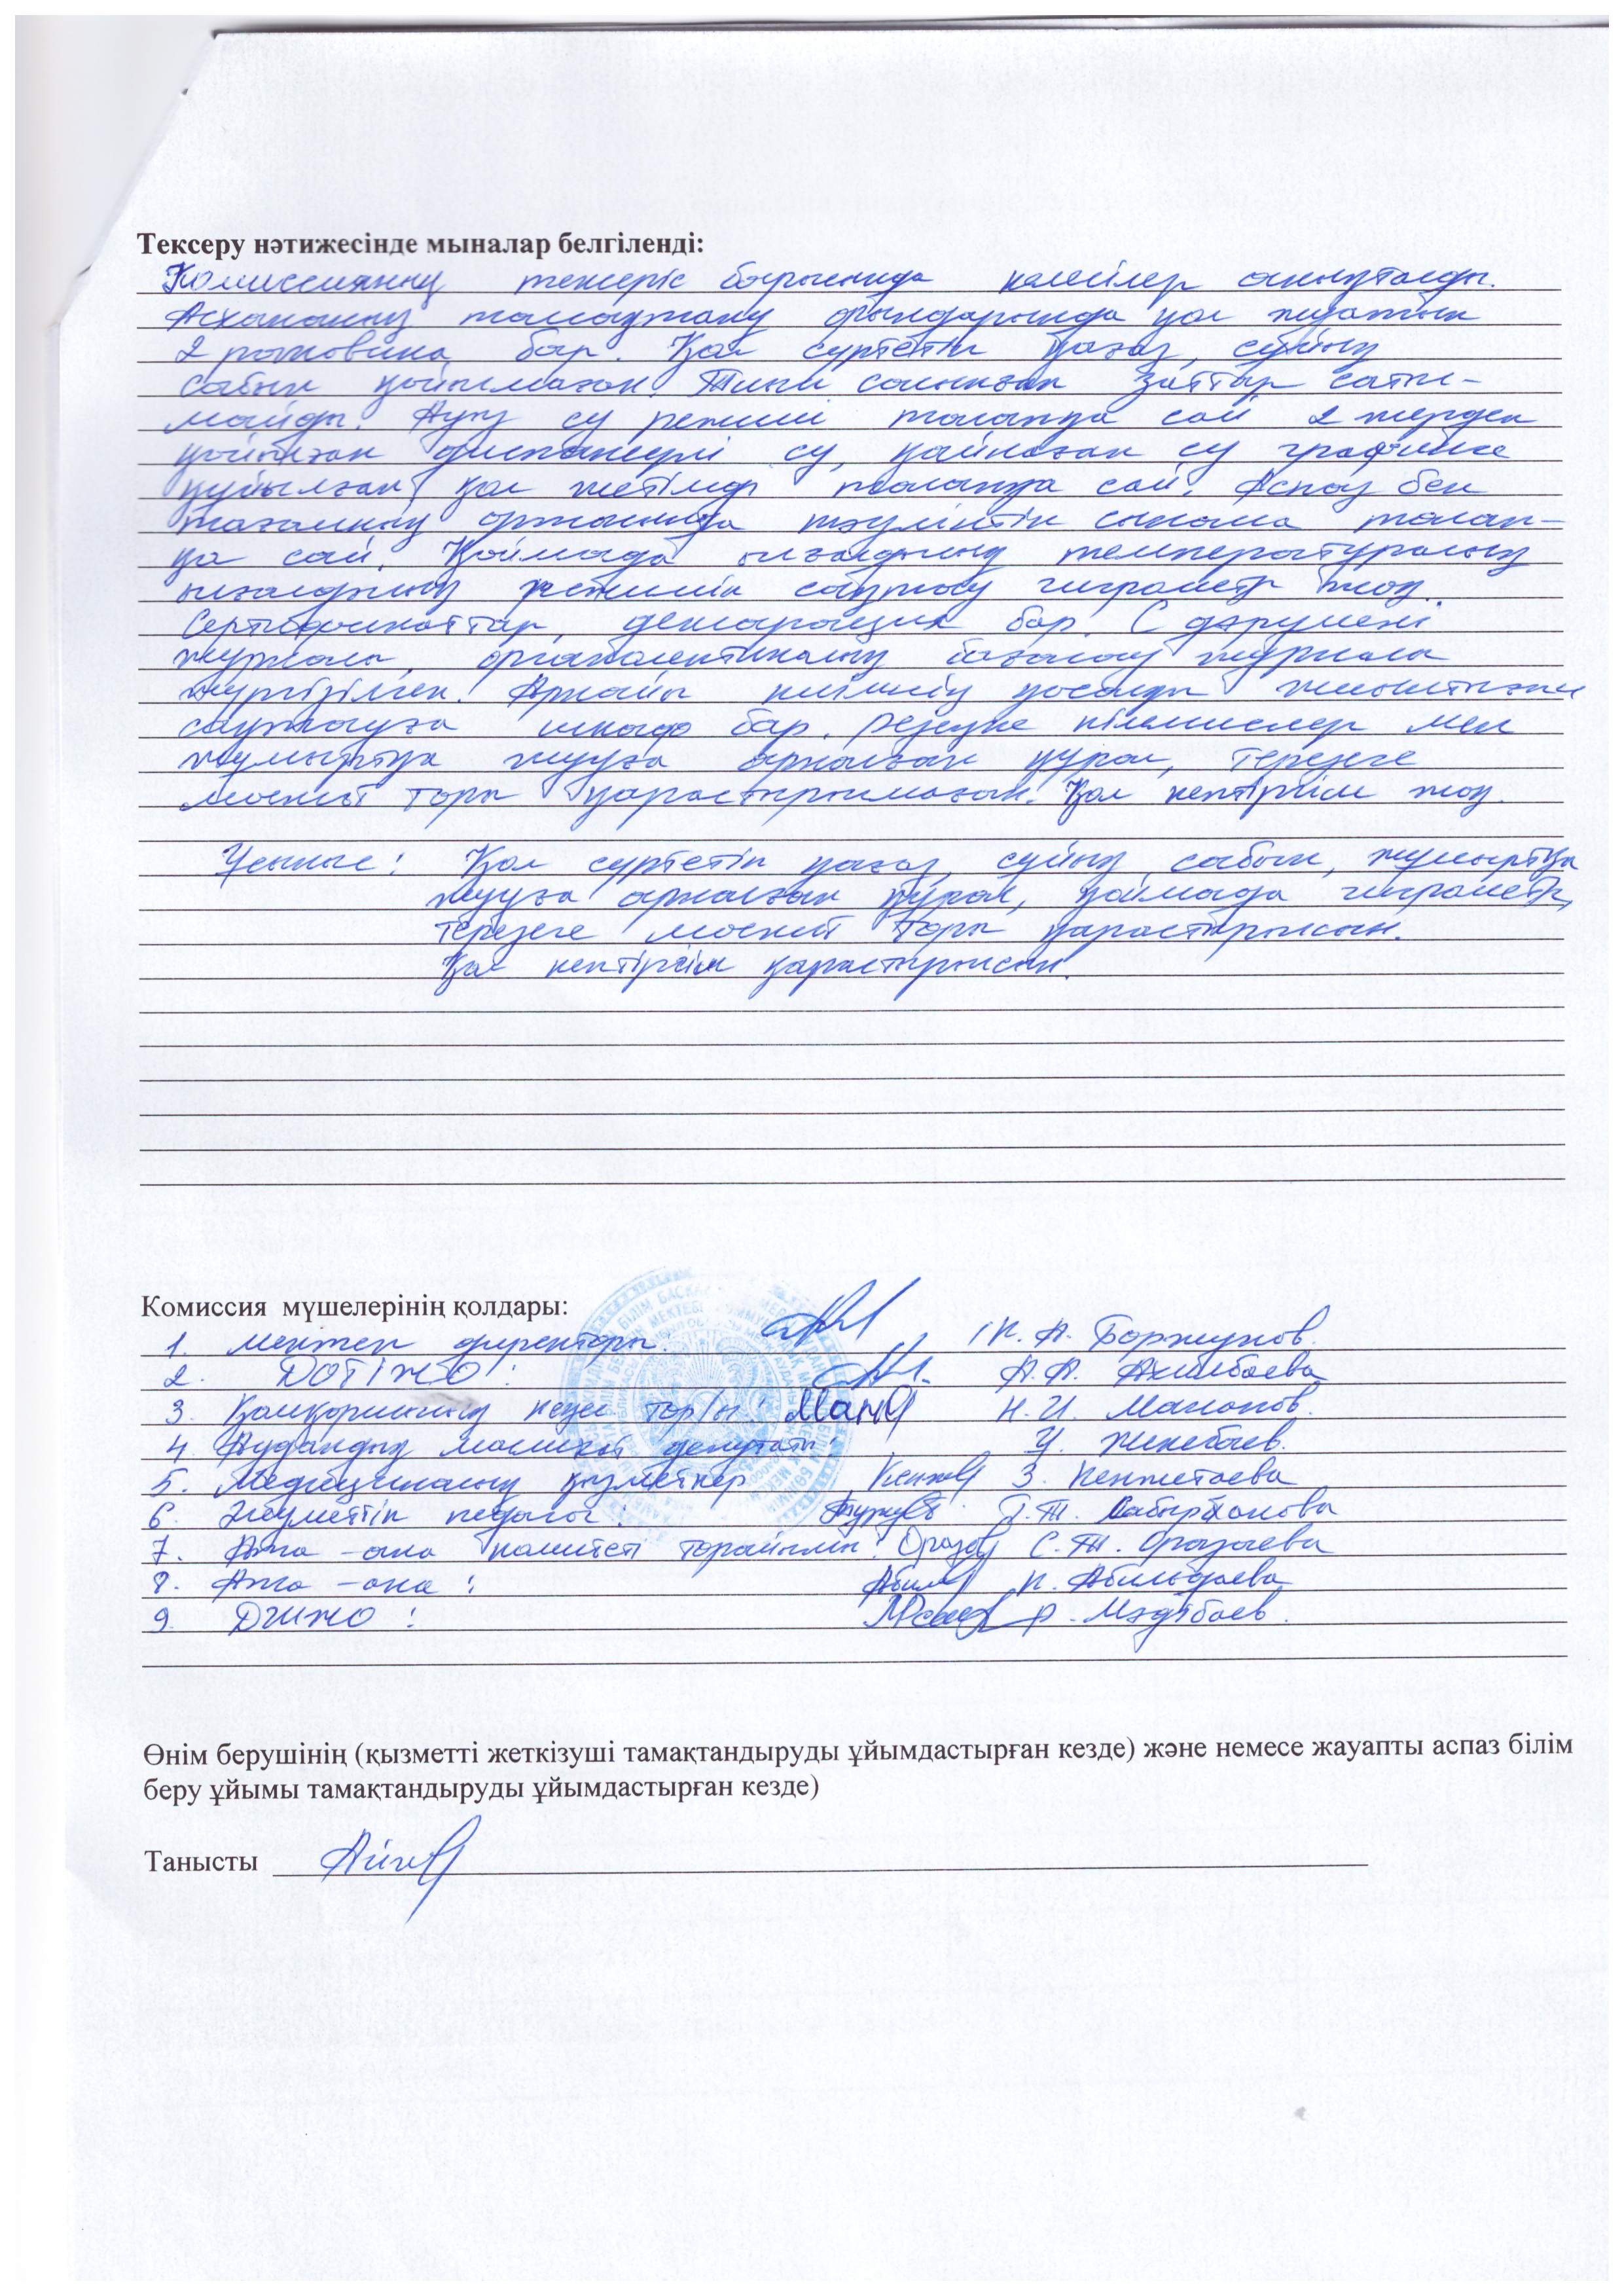 Тексеру нәтижесінде мыналар белгіленді:
Комиссияның тексеріс барысында келесілер анықталды.
Асхананың тамақтану орындарында қол жуатын
2 раковина бар. Қол сүртетін қағаз, сұйық
сабын қойылмаған. Тиым салынған заттар сатыл-
майды. Ауыз су режимі талапқа сай 2 жерден
қойылған диспансерлі су, қайнаған су графинге
құйылған, қол жетімді талапқа сай. Аспаз бен
тағамның ортасында тәуліктік сынама талап-
қа сай. Қоймада ылғалдың температуралық
ылғалдылық режимін сақтау гигрометр жоқ.
Сертификаттар, декларация бар. С дәрумені
журналы, органолептикалық бағалау журнал
жүргізілген. Арнайы киімнің қосалқы жиынтығын
сақтауға шкаф бар. резеңке кілемшелер мен
жұмыртқа жууға арналған құрал, терезеге
москит торы қарастырылмаған. Қол кептіргіш жоқ.
Ұсыныс: Қол сүртетін қағаз, сұйық сабын, жұмыртқа
жууға арналған құрал, қоймада гигрометр,
терезеге москит торы қарастырылсын.
Қол кептіргіш қарастырылсын.
Комиссия мүшелерінің қолдары:
1. Мектеп директоры: К. А. Боржунов.
2. ДОТІЖО: А.А. Ахилбаева
3. Қамқоршылық кеңес төр/ы: Н.И. Манапов.
4. Аудандық маслихат депутаты: У. Жикебаев.
5. Медициналық қызметкер З. Кенжетаева
6. Әлеуметтік педагог: Г.Т. Сабырханова
7. Ата-ана комитеті төрайымы: С.Т. Оразаева
8. Ата-ана: К. Абилдаева
9. ДШЖО: Р. Мәдібаев.
Өнім берушінің (қызметті жеткізуші тамақтандыруды ұйымдастырған кезде) және немесе жауапты аспаз білім
беру ұйымы тамақтандыруды ұйымдастырған кезде)
Танысты